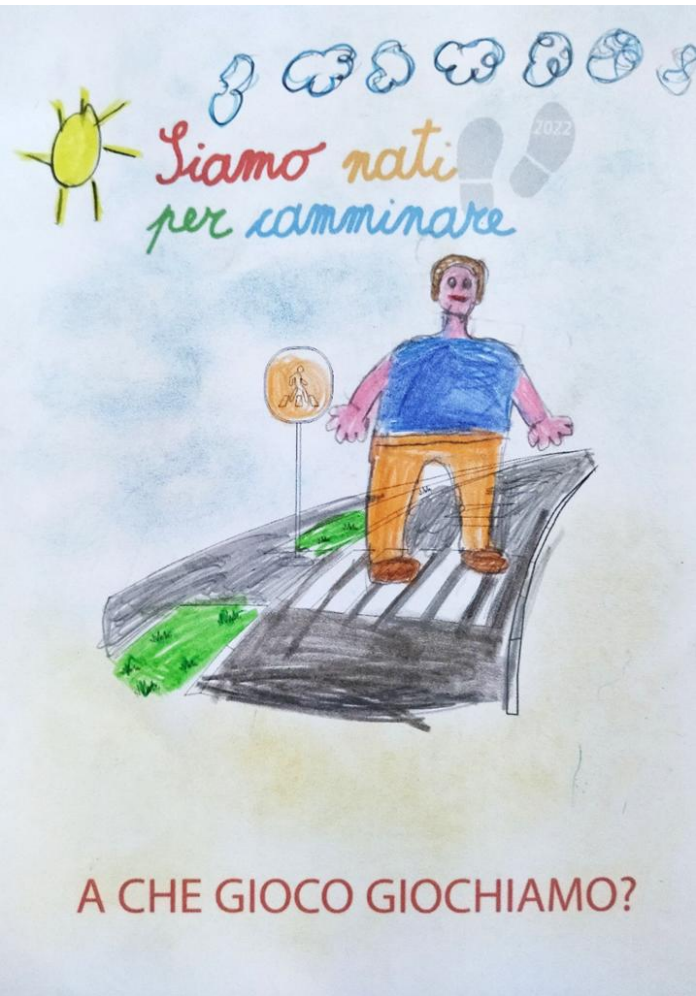 Siamo nati
2022
per camminare
A CHE GIOCO GIOCHIAMO?